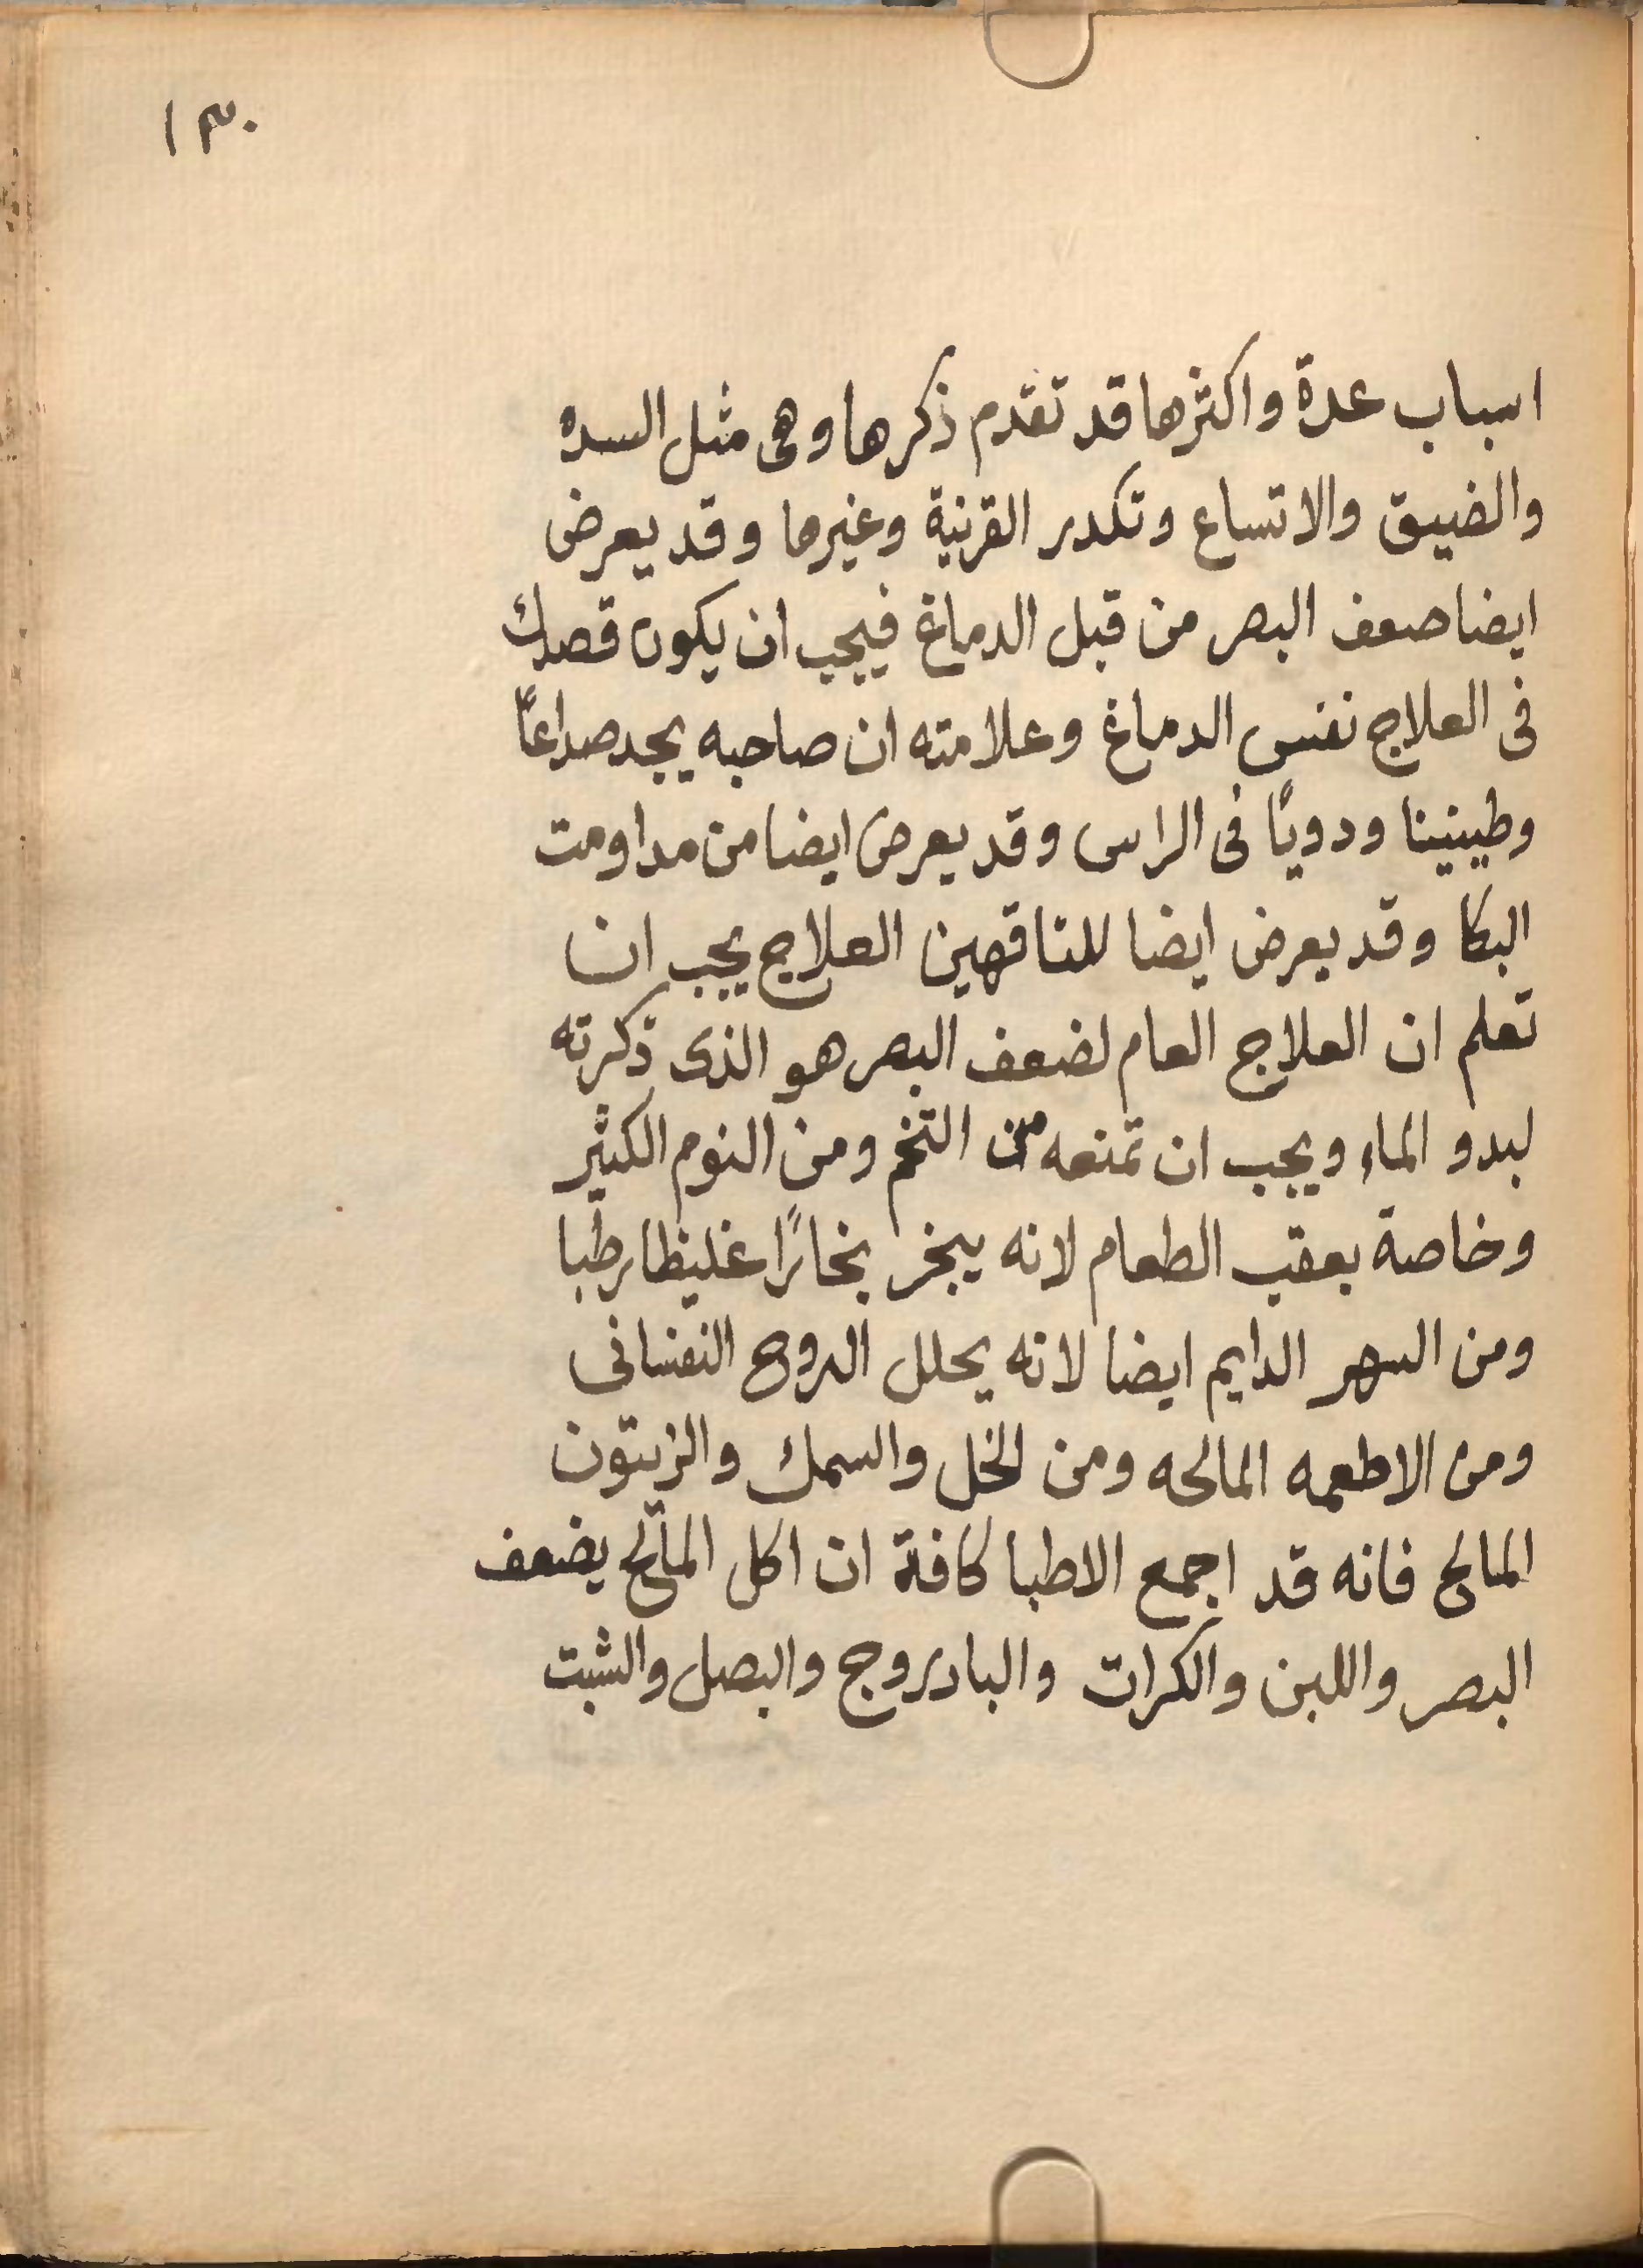 ١٣٠
اسباب عدة واكثرها قد تقدم ذكرها وهى مثل السده
والضيق والاتساع وتكدر القرنية وغيرها وقد يعرض
ايضا صعف البصر من قبل الدماغ فيجب ان يكون قصدك
فى العلاج نفس الدماغ وعلامته ان صاحبه يجد صداعًا
وطينينا ودويًا فى الراس وقد يعرض ايضا من مداومت
البكا وقد يعرض ايضا للناقهين العلاج يجب ان
تعلم ان العلاج العام لضعف البصر هو الذى ذكرته
لبدو الماء ويجب ان تمنعه من التخم ومن النوم الكثير
وخاصة بعقب الطعام لانه يبخر بخارًا غليظا رطبا
ومن السهر الدايم ايضا لانه يحلل الروح النفسانى
ومن الاطعمه المالحه ومن الخل والسمك والزيتون
المالح فانه قد اجمع الاطبا كافة ان اكل المالح يضعف
البصر واللبن والكرات والبادروج والبصل والشبت